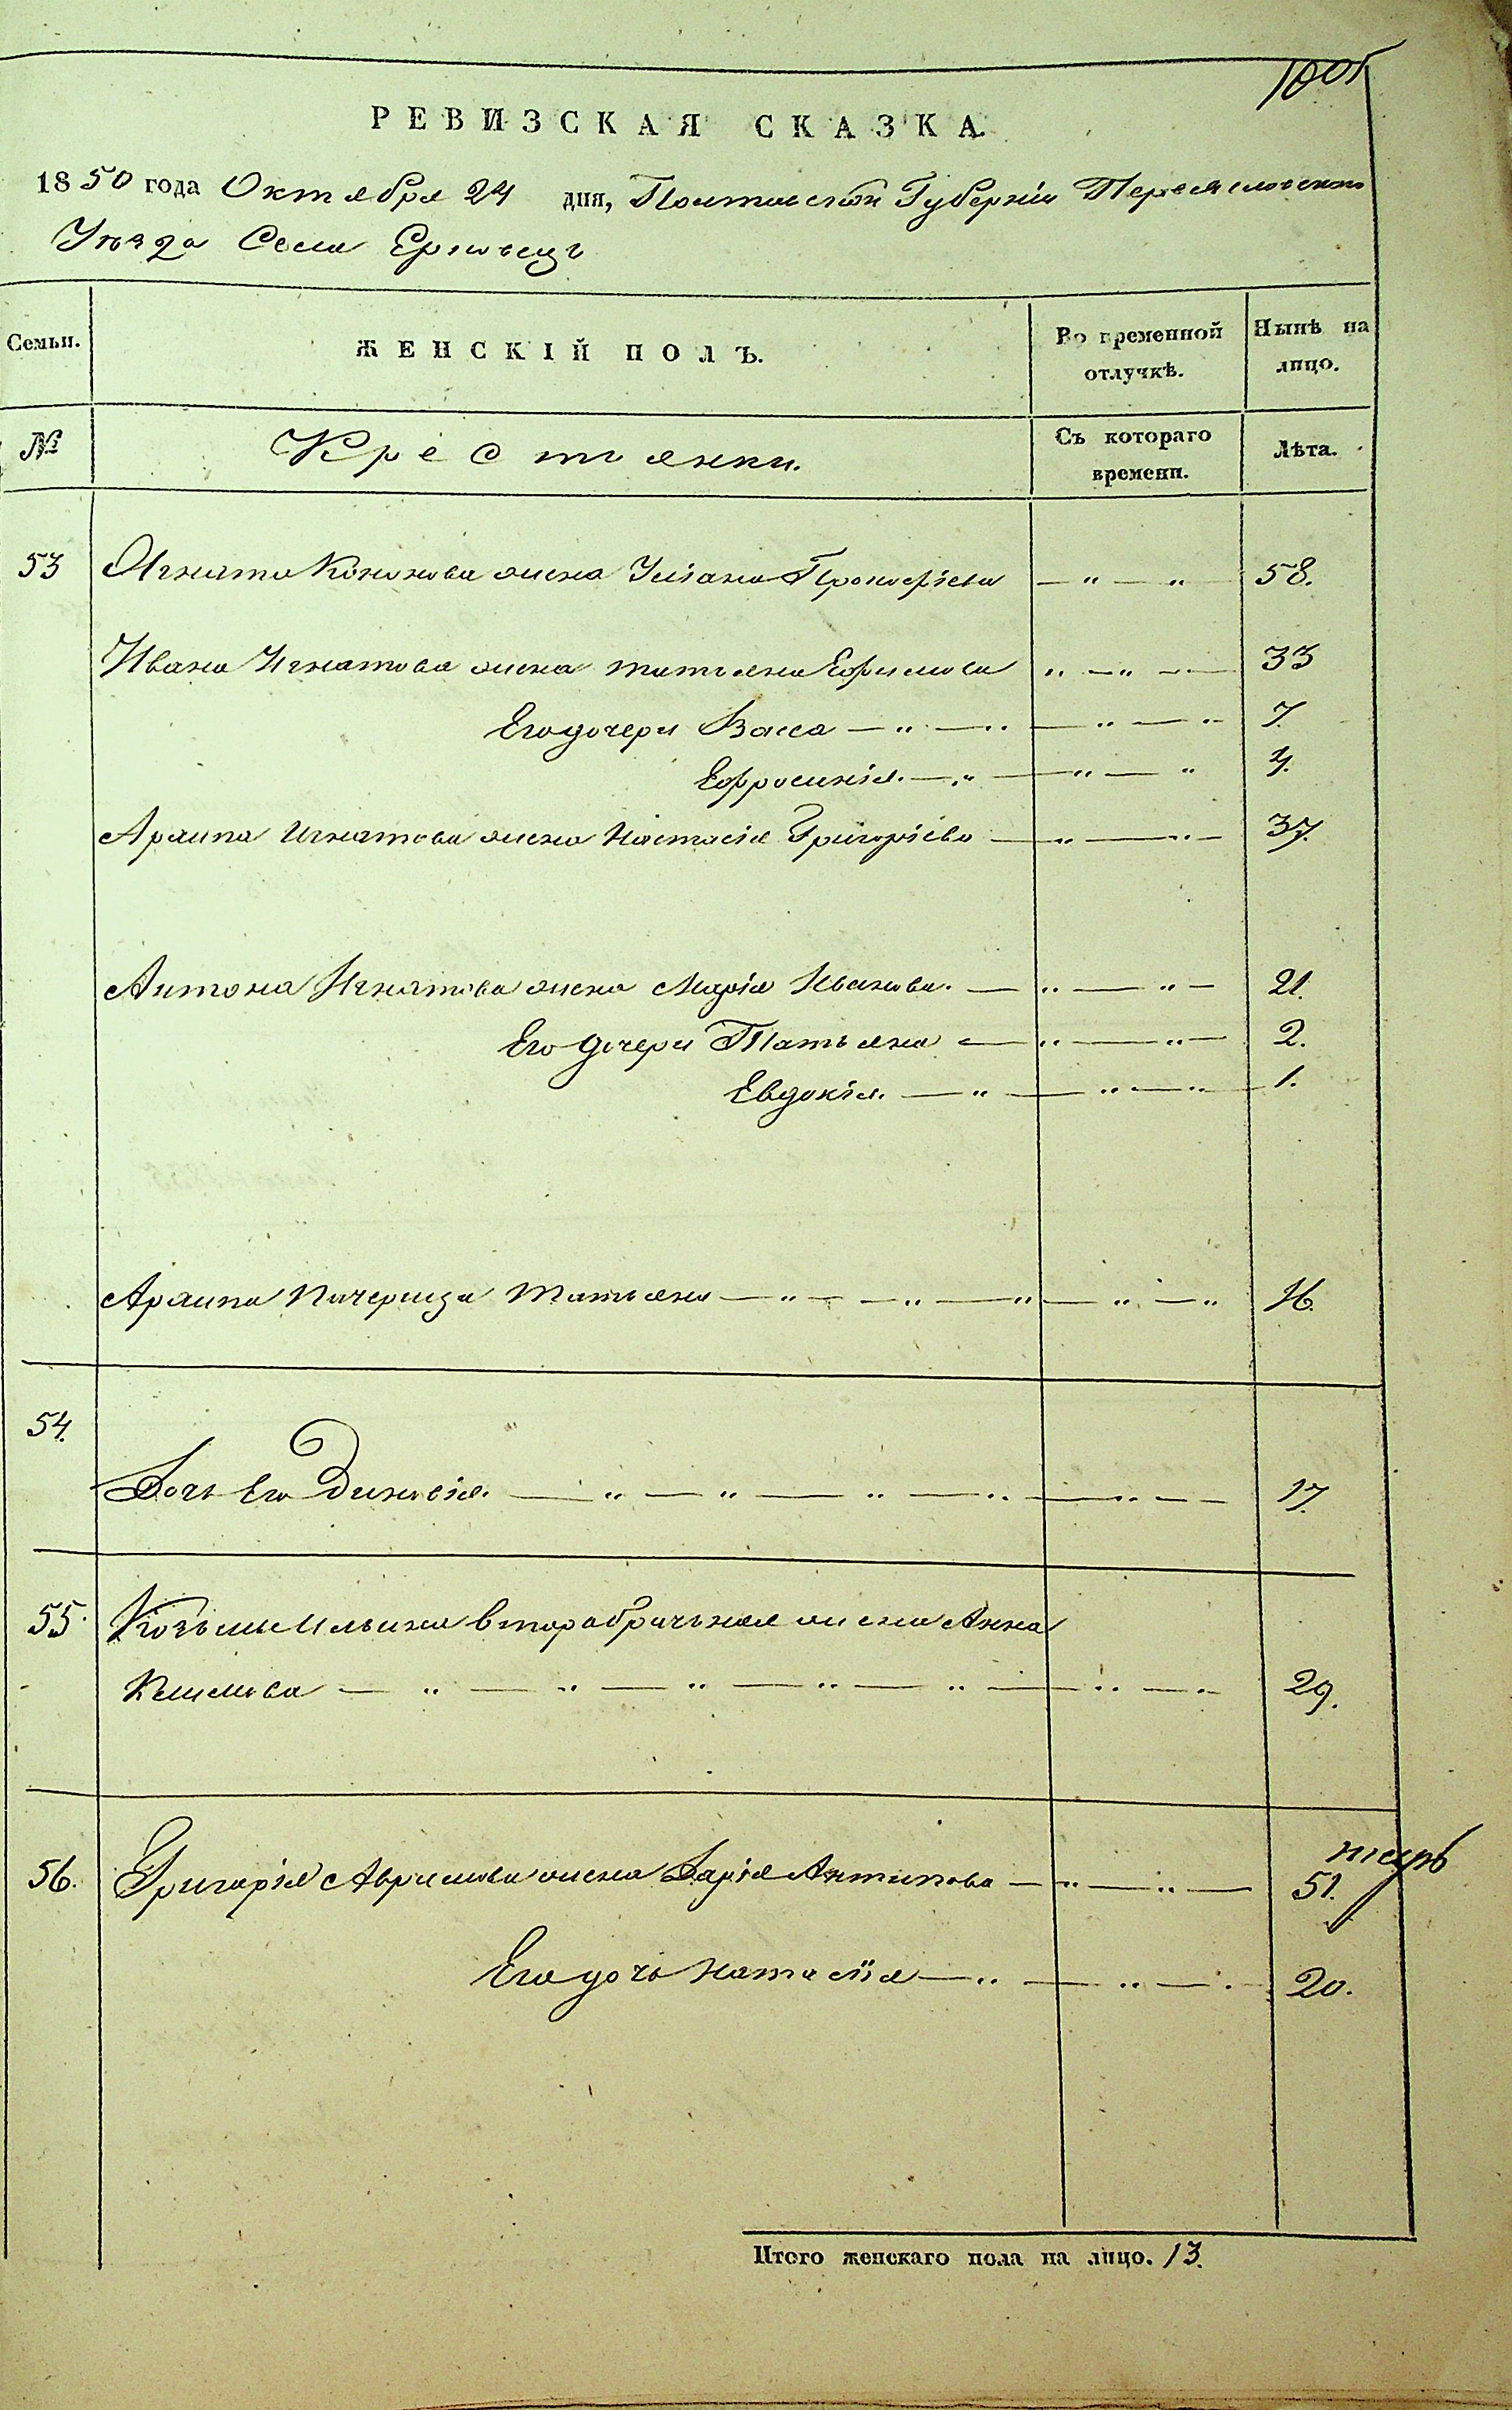 1001
РЕВИЗСКАЯ СКАЗКА.
1850 года Октября 24 дня, Полтавской Губерніи Переяславского
Уѣзда Села Ерковец
Семьи. ЖЕНСКІЙ ПОЛЪ. Во временной отлучкѣ. Нынѣ на лицо.
№ Крестьянки. Съ котораго времени. Лѣта.
53 Игната Кононова жена Уліана Прокофіева — " — " 58.
Ивана Игнатова жена татьяна Ефимова " — " — 33
Его дочери Васса — " — " — " — " 7.
Ефросинія. — " — " — " 4.
Архипа Игнатова жена Настасія Григоріева — " — " — 37.
Антона Игнатова жена Марія Иванова. — " — " — 21.
Его дочери Татьяна — " — " — 2.
Евдокія. — " — " — " 1.
Архипа Татьяна — " — — " — " — " — " 16.
54. Дочь Его Зиновія. — " — " — " — " — " — — 17.
55. Козьмы Ильина вторабрачьная жена Анна
Климова — " — " — " — " — " — " — " 29.
56. Григорія Абрамова жена Дарія Антипова — " — " — 51.
Его дочь Натасія — " — " — " 20.
Итого женскаго пола на лицо. 13.